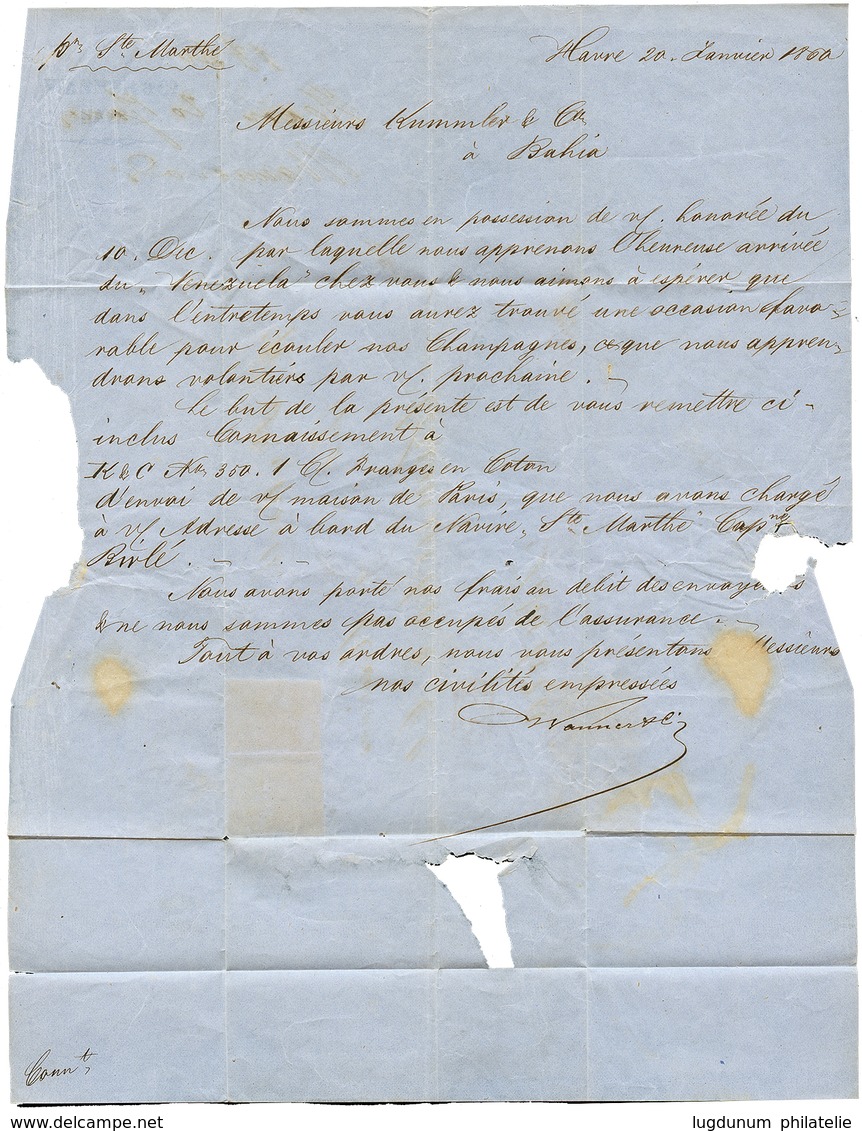 pr Ste Marthe
Havre 20. Janvier 1860
Messieurs Kummler & Cie
à Bahia
Nous sommes en possession de v/. honorée du
10. Dec. par laquelle nous apprenons l'heureuse arrivée
du „Venezuela" chez vous & nous aimons à espérer que
dans l'entretemps vous aurez trouvé une occasion favo-
rable pour écouler nos Champagnes, ce que nous appren-
drons volontiers par v/. prochaine.
Le but de la présente est de vous remettre ci-
inclus Connaissement à
K & C No 350. 1 C/. Franges en Coton
d'envoi de v/ maison de Paris, que nous avons chargé
à v/ Adresse à bord du Navire „Ste Marthe" Capne
Birlé.
Nous avons porté nos frais au debit des envoyeurs
& ne nous sommes pas occupés de l'assurance.
Tout à vos ordres, nous vous présentons Messieurs
nos civilités empressées
Wanner & C.
Connt
delcampe.net
lugdunum philatelie